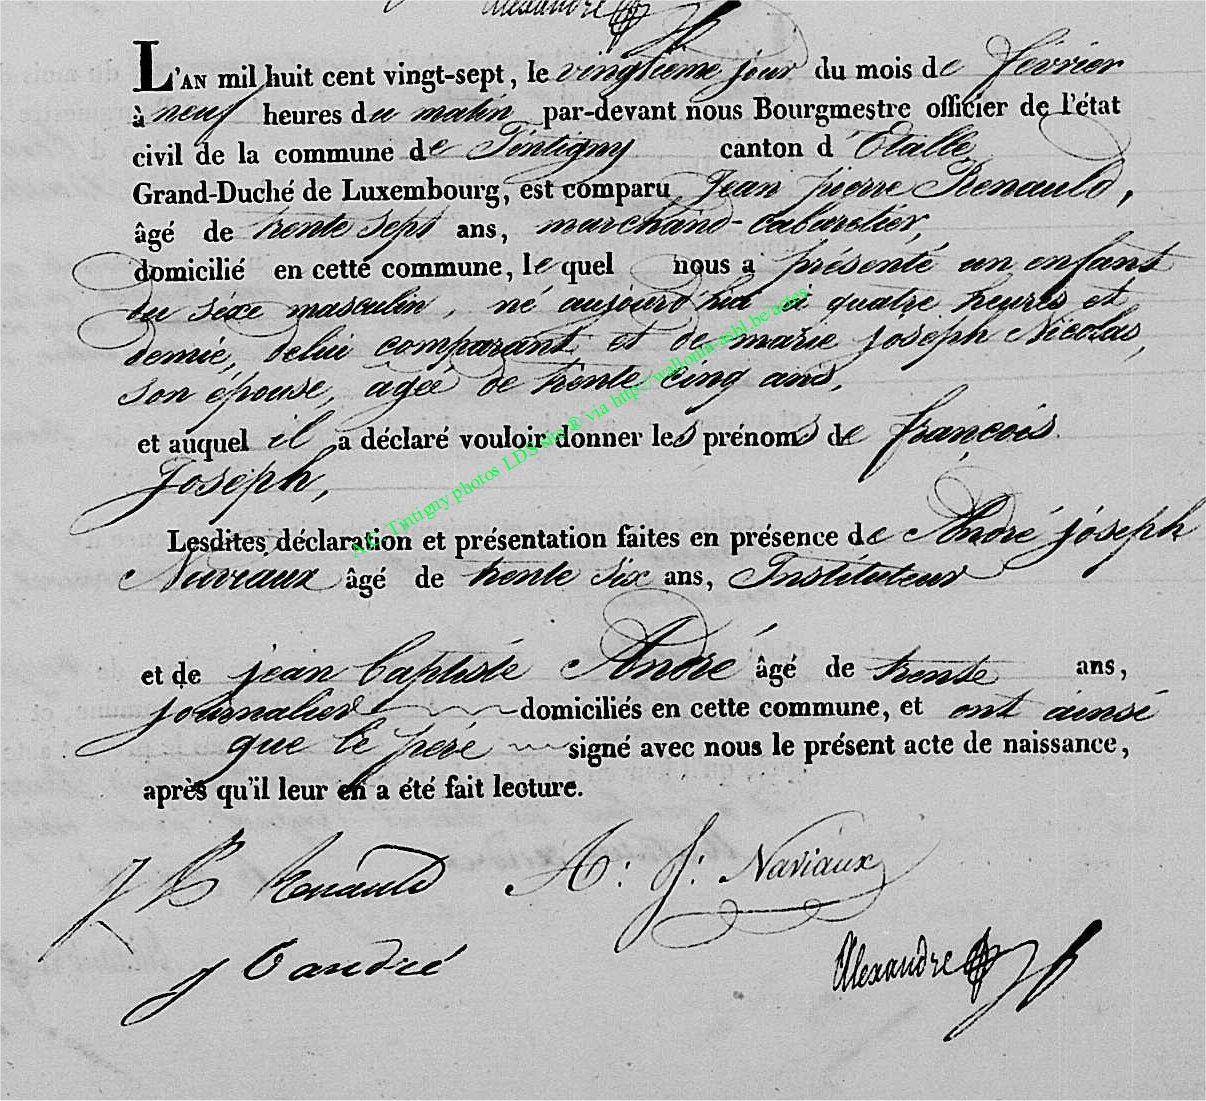 Alexandre
L'AN mil huit cent vingt-sept, le vingtieme jour du mois de février
à neuf heures du matin par-devant nous Bourgmestre officier de l'état
civil de la commune de Tintigny canton d'Etalle
Grand-Duché de Luxembourg, est comparu Jean pierre Renauld,
âgé de trente sept ans, marchand-cabaretier,
domicilié en cette commune, le quel nous a présenté un enfant
du séxe masculin, né aujourd'hui à quatre heures et
demie, de lui comparant et de marie joseph Nicolas,
son épouse, agée de trente cinq ans,
et auquel il a déclaré vouloir donner les prénoms de françois
Joseph,
Lesdites déclaration et présentation faites en présence de André joseph
Naviaux âgé de trente six ans, Instituteur
et de jean baptiste André âgé de trente ans,
journalier domiciliés en cette commune, et ont ainsi
que le père signé avec nous le présent acte de naissance,
après qu'il leur en a été fait lecture.
J P Renauld A: J: Naviaux
J B andré
Alexandre
A.C. Tintigny photos LDS via http://wallonia-asbl.be/actes